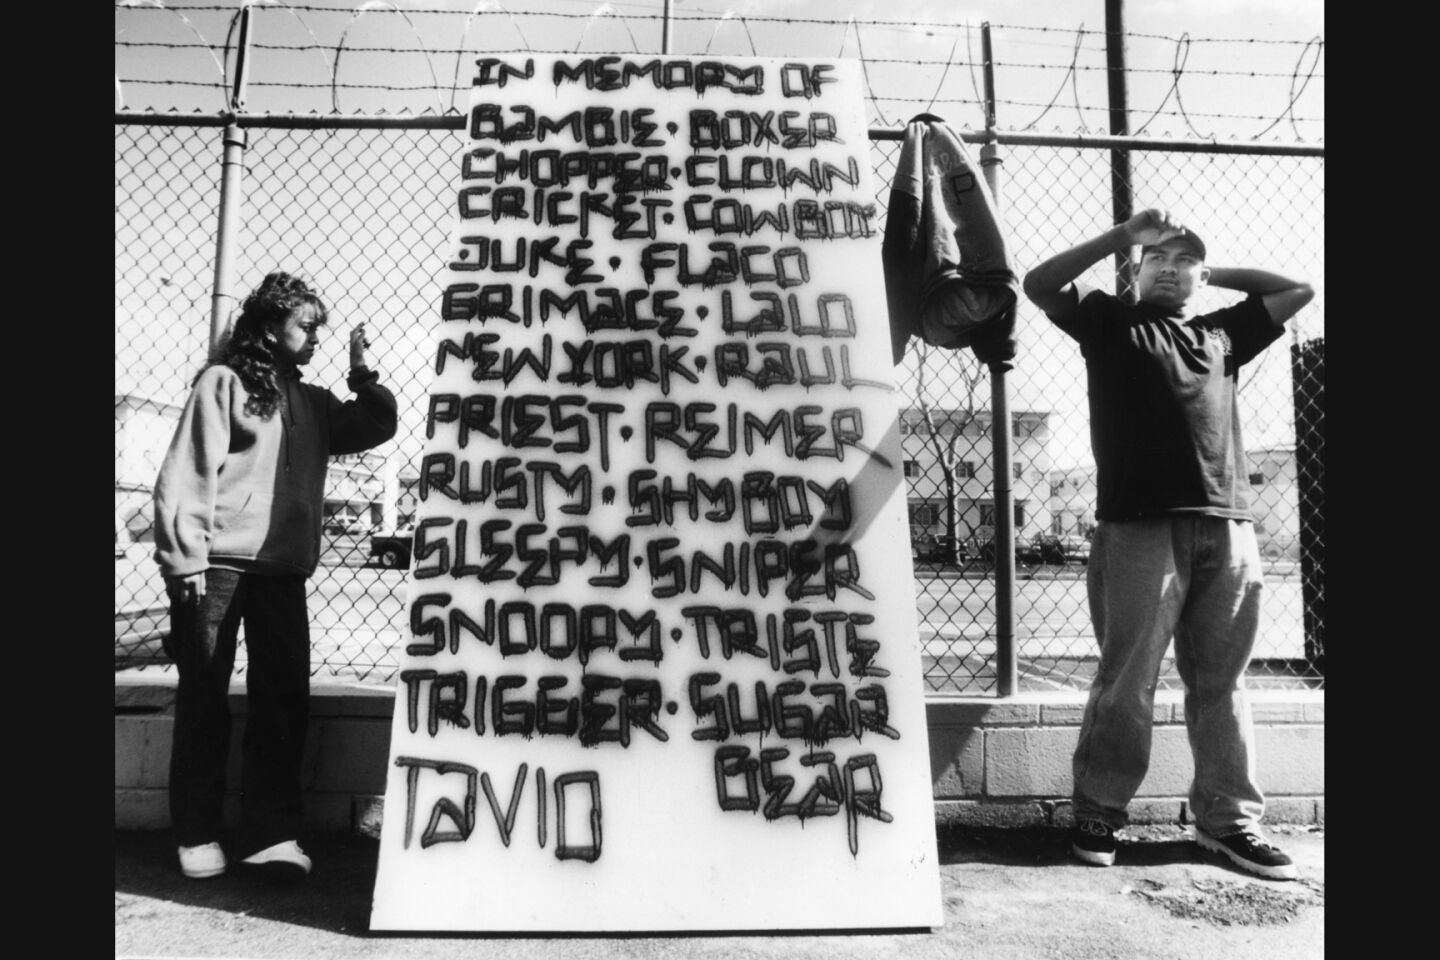 IN MEMORY OF
BAMBIE · BOXER
CHOPPER · CLOWN
CRICKET · COWBOY
· JUKE · FLACO
GRIMACE · LALO
NEW YORK · RAUL
PRIEST · REIMER
RUSTY · SHYBOY
SLEEPY · SNIPER
SNOOPY · TRISTE
TRIGGER · SUGAR
BEAR
TAVIO
P